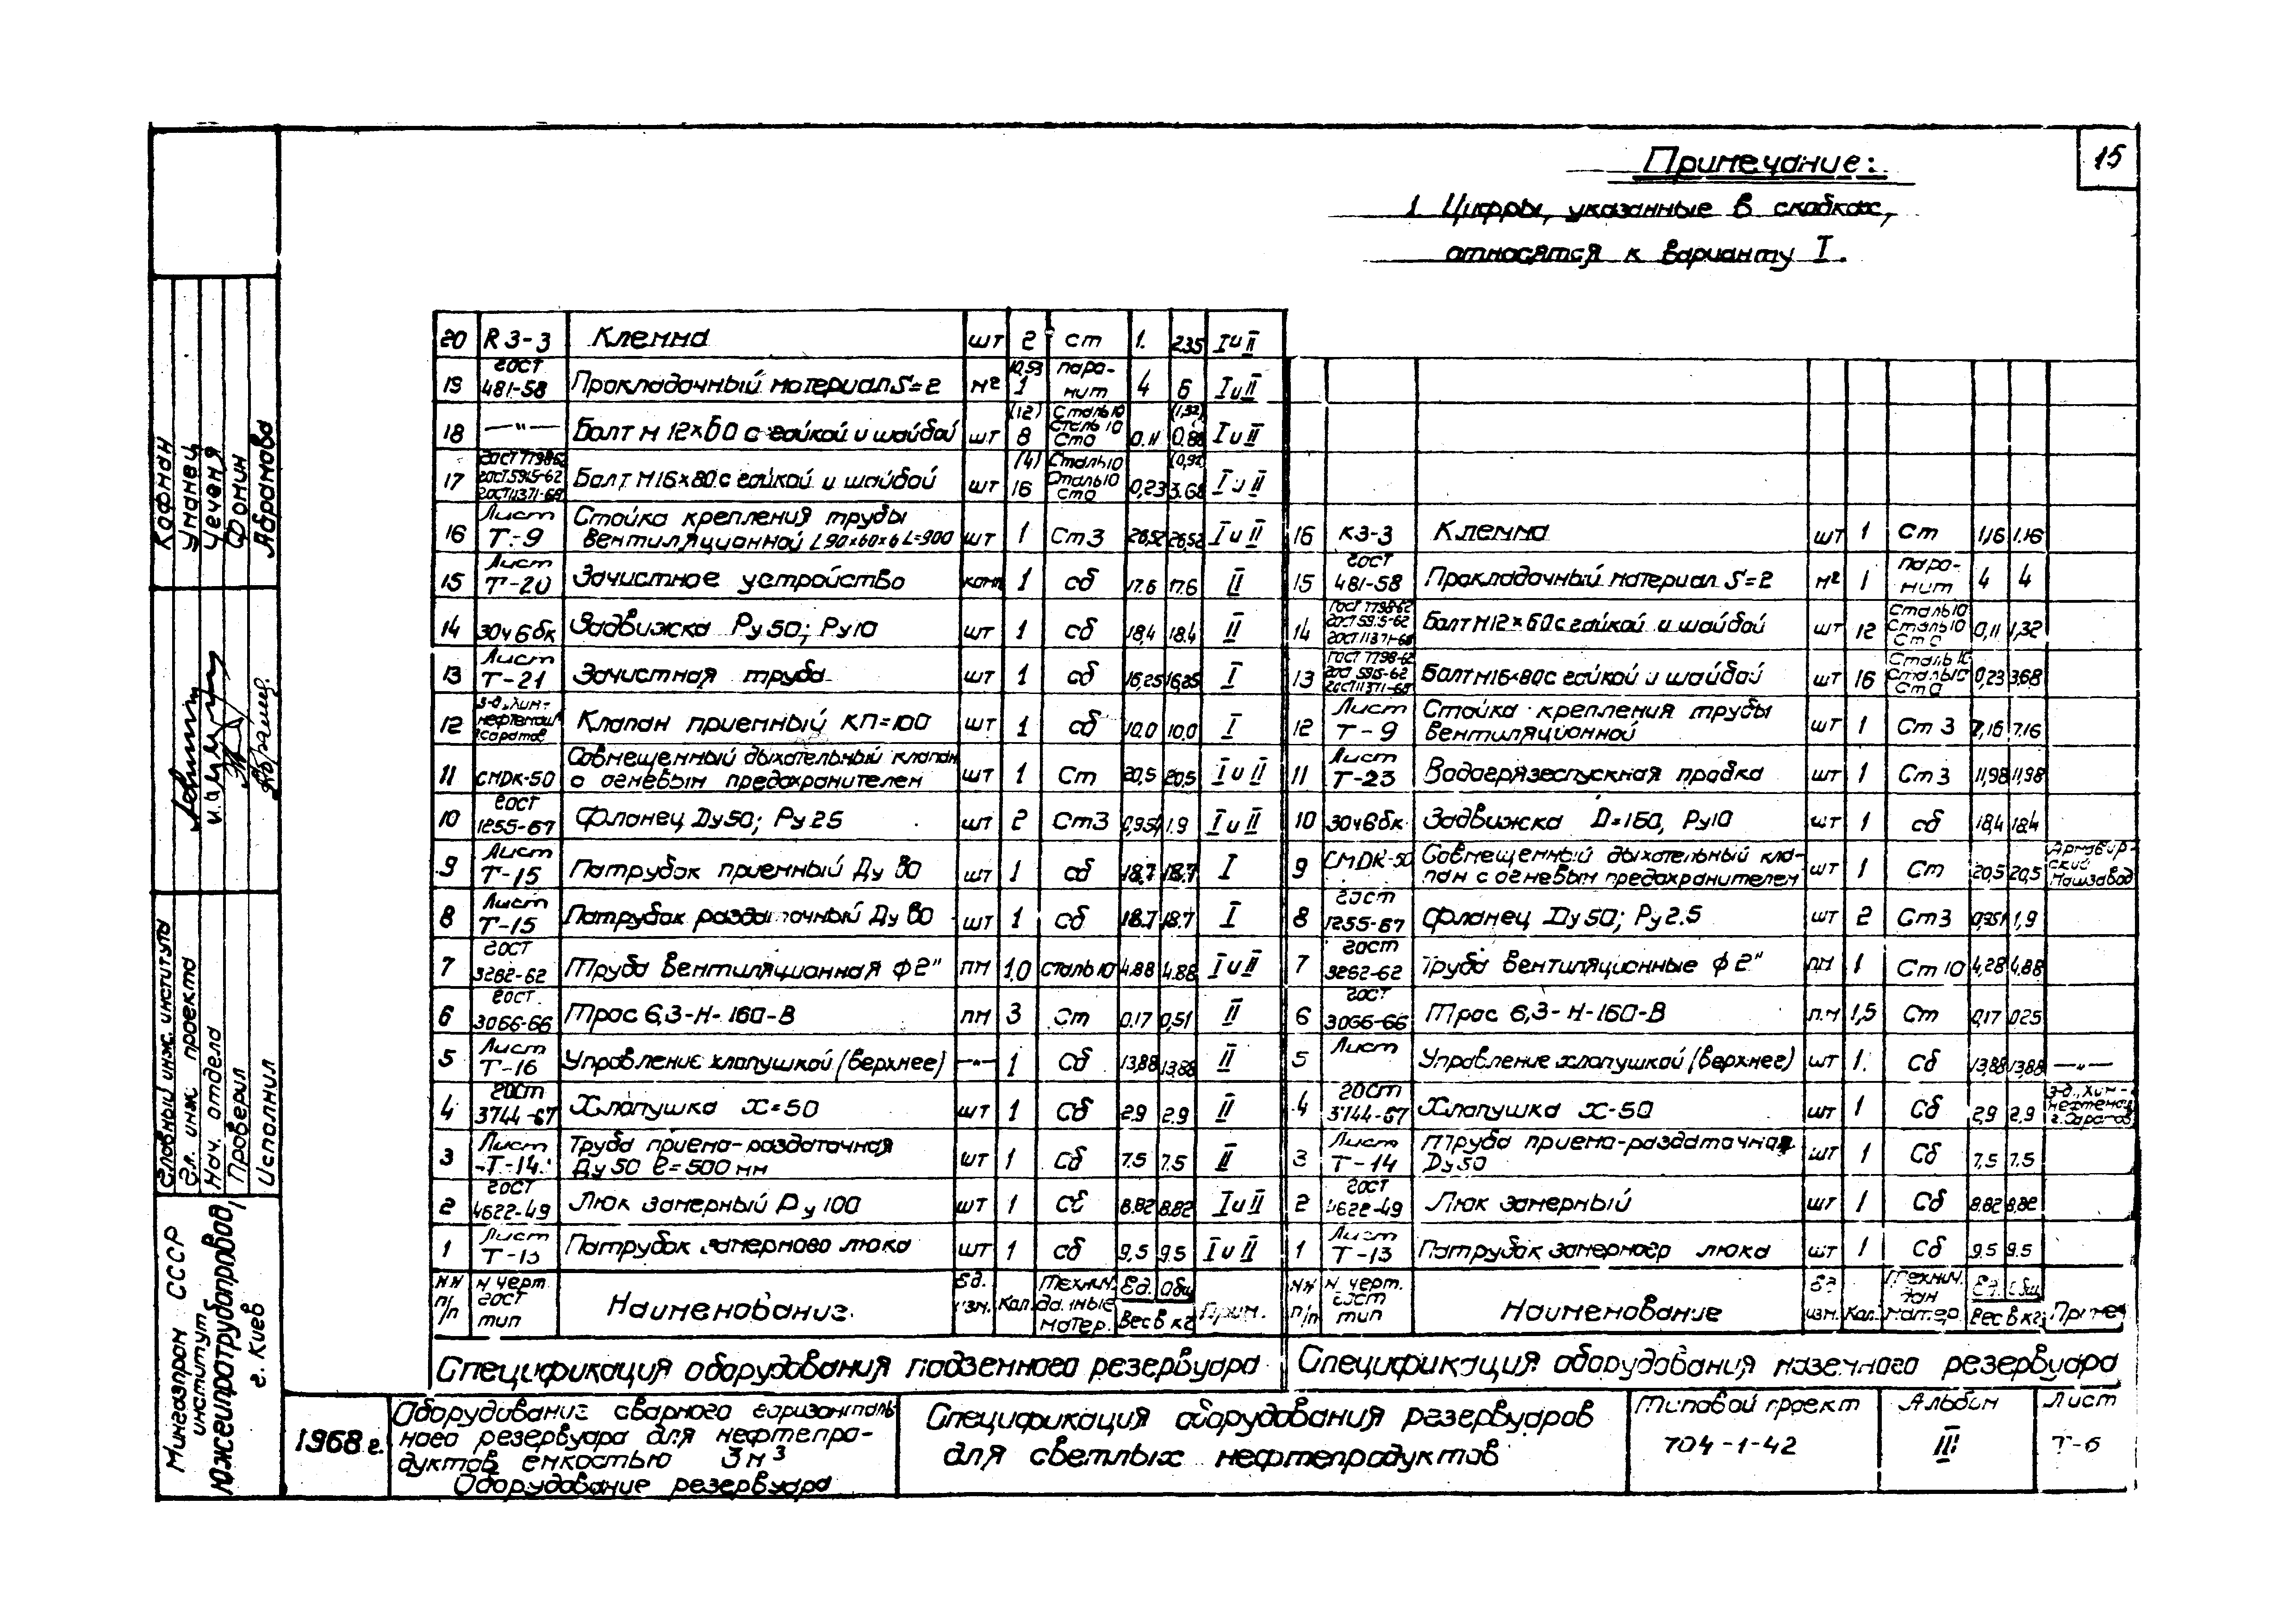 15
Примечание:
1. Цифры, указанные в скобках,
относятся к варианту I.
20 R3-3 Клемма шт 2 ст 1. 2.35 I и II
19 гост 481-58 Прокладочный материал S=2 м² 1 паронит 4 6 I и II
18 —"— Болт М12×60 с гайкой и шайбой шт (12) 8 Сталь 10 Сталь 10 Ст0 0.11 (1,32) 0.88 I и II
17 ГОСТ 7798-62 ГОСТ 5915-62 ГОСТ 11371-68 Болт М16×80 с гайкой и шайбой шт (4) 16 Сталь 10 Сталь 10 Ст0 0,23 (0,92) 3.68 I и II
16 Лист Т-9 Стойка крепления трубы вентиляционной L90×60×6 L=900 шт 1 Ст3 26,52 26,52 I и II
15 Лист Т-20 Зачистное устройство комп 1 сб 17.6 17.6 II
14 30ч6бк Задвижка Ру50; Ру10 шт 1 сб 18,4 18.4 II
13 Лист Т-21 Зачистная труба шт 1 сб 16,25 16,25 I
12 з-д „Хим-нефтемаш" Саратов Клапан приемный КП=100 шт 1 сб 10.0 10.0 I
11 СМДК-50 Совмещенный дыхательный клапан с огневым предохранителем шт 1 Ст 20,5 20,5 I и II
10 гост 1255-67 Фланец Ду50; Ру25 шт 2 Ст3 0,951 1.9 I и II
9 Лист Т-15 Патрубок приемный Ду 80 шт 1 сб 18.7 18.7 I
8 Лист Т-15 Патрубок раздаточный Ду 80 шт 1 сб 18.7 18.7 I
7 гост 3262-62 Труба вентиляционная ф2" пм 1.0 сталь 10 4.88 4.88 I и II
6 гост 3066-66 Трос 6,3-Н-160-В пм 3 Ст 0.17 0,51 II
5 Лист Т-16 Управление хлопушкой (верхнее) —"— 1 Сб 13,88 13.88 II
4 гост 3744-67 Хлопушка Х=50 шт 1 Сб 2.9 2.9 II
3 Лист Т-14 Труба приемо-раздаточная Ду 50 ℓ=500 мм шт 1 Сб 7.5 7.5 II
2 гост 4622-49 Люк замерный Ру 100 шт 1 Сб 8.82 8.82 I и II
1 Лист Т-13 Патрубок замерного люка шт 1 сб 9,5 9.5 I и II
NN п/п N черт. гост тип Наименование Ед. изм. Кол. Технич. данные матер. Ед. Общ Вес в кг Прим.
Спецификация оборудования подземного резервуара
16 К3-3 Клемма шт 1 Ст 1,16 1.16
15 гост 481-58 Прокладочный материал S=2 м² 1 паронит 4 4
14 ГОСТ 7798-62 ГОСТ 5915-62 ГОСТ 11371-68 Болт М12×60 с гайкой и шайбой шт 12 Сталь 10 Сталь 10 Ст 0 0,11 1,32
13 ГОСТ 7798-62 ГОСТ 5915-62 ГОСТ 11371-68 Болт М16×80 с гайкой и шайбой шт 16 Сталь 10 Сталь 10 Ст 0 0,23 3.68
12 Лист Т-9 Стойка крепления трубы вентиляционной шт 1 Ст 3 7,16 7.16
11 Лист Т-23 Водогрязеспускная пробка шт 1 Ст 3 11,98 11,98
10 30ч6бк Задвижка D=150, Ру10 шт 1 сб 18,4 18.4
9 СМДК-50 Совмещенный дыхательный кла-пан с огневым предохранителем шт 1 Ст 20,5 20,5 Армавир-ский машзавод
8 гост 1255-67 Фланец Ду 50; Ру 2.5 шт 2 Ст3 0,951 1,9
7 гост 3262-62 Труба вентиляционные ф 2" пм 1 Ст 10 4,28 4,88
6 гост 3066-66 Трос 6,3-Н-160-В п.м 1,5 Ст 0,17 0.25
5 Лист Управление хлопушкой (верхнее) шт 1. Сб 13,88 13,88 —"—
4 гост 3744-67 Хлопушка Х-50 шт 1 Сб 2,9 2,9 з-д „Хим-нефтемаш г. Саратов
3 Лист Т-14 Труба приемо-раздаточная Ду50 шт 1 Сб 7,5 7.5
2 гост 4622-49 Люк замерный шт 1 Сб 8.82 8,82
1 Лист Т-13 Патрубок замерного люка шт 1 Сб 9.5 9.5
NN п/п N черт. гост тип Наименование Ед изм. Кол. Технич. дан матер. Ед. Общ Вес в кг Примеч
Спецификация оборудования наземного резервуара
Кофман
Уманец
Чеченя
Фомин
Абрамова
Главный инж. института
Гл. инж. проекта
Нач. отдела
Проверил
Исполнил
Мингазпром СССР
институт
Южгипротрубопровод
г. Киев
1968 г.
Оборудование сварного горизонталь-
ного резервуара для нефтепро-
дуктов емкостью 3м³
Оборудование резервуара
Спецификация оборудования резервуаров
для светлых нефтепродуктов
Типовой проект
704-1-42
Альбом
III
Лист
Т-6